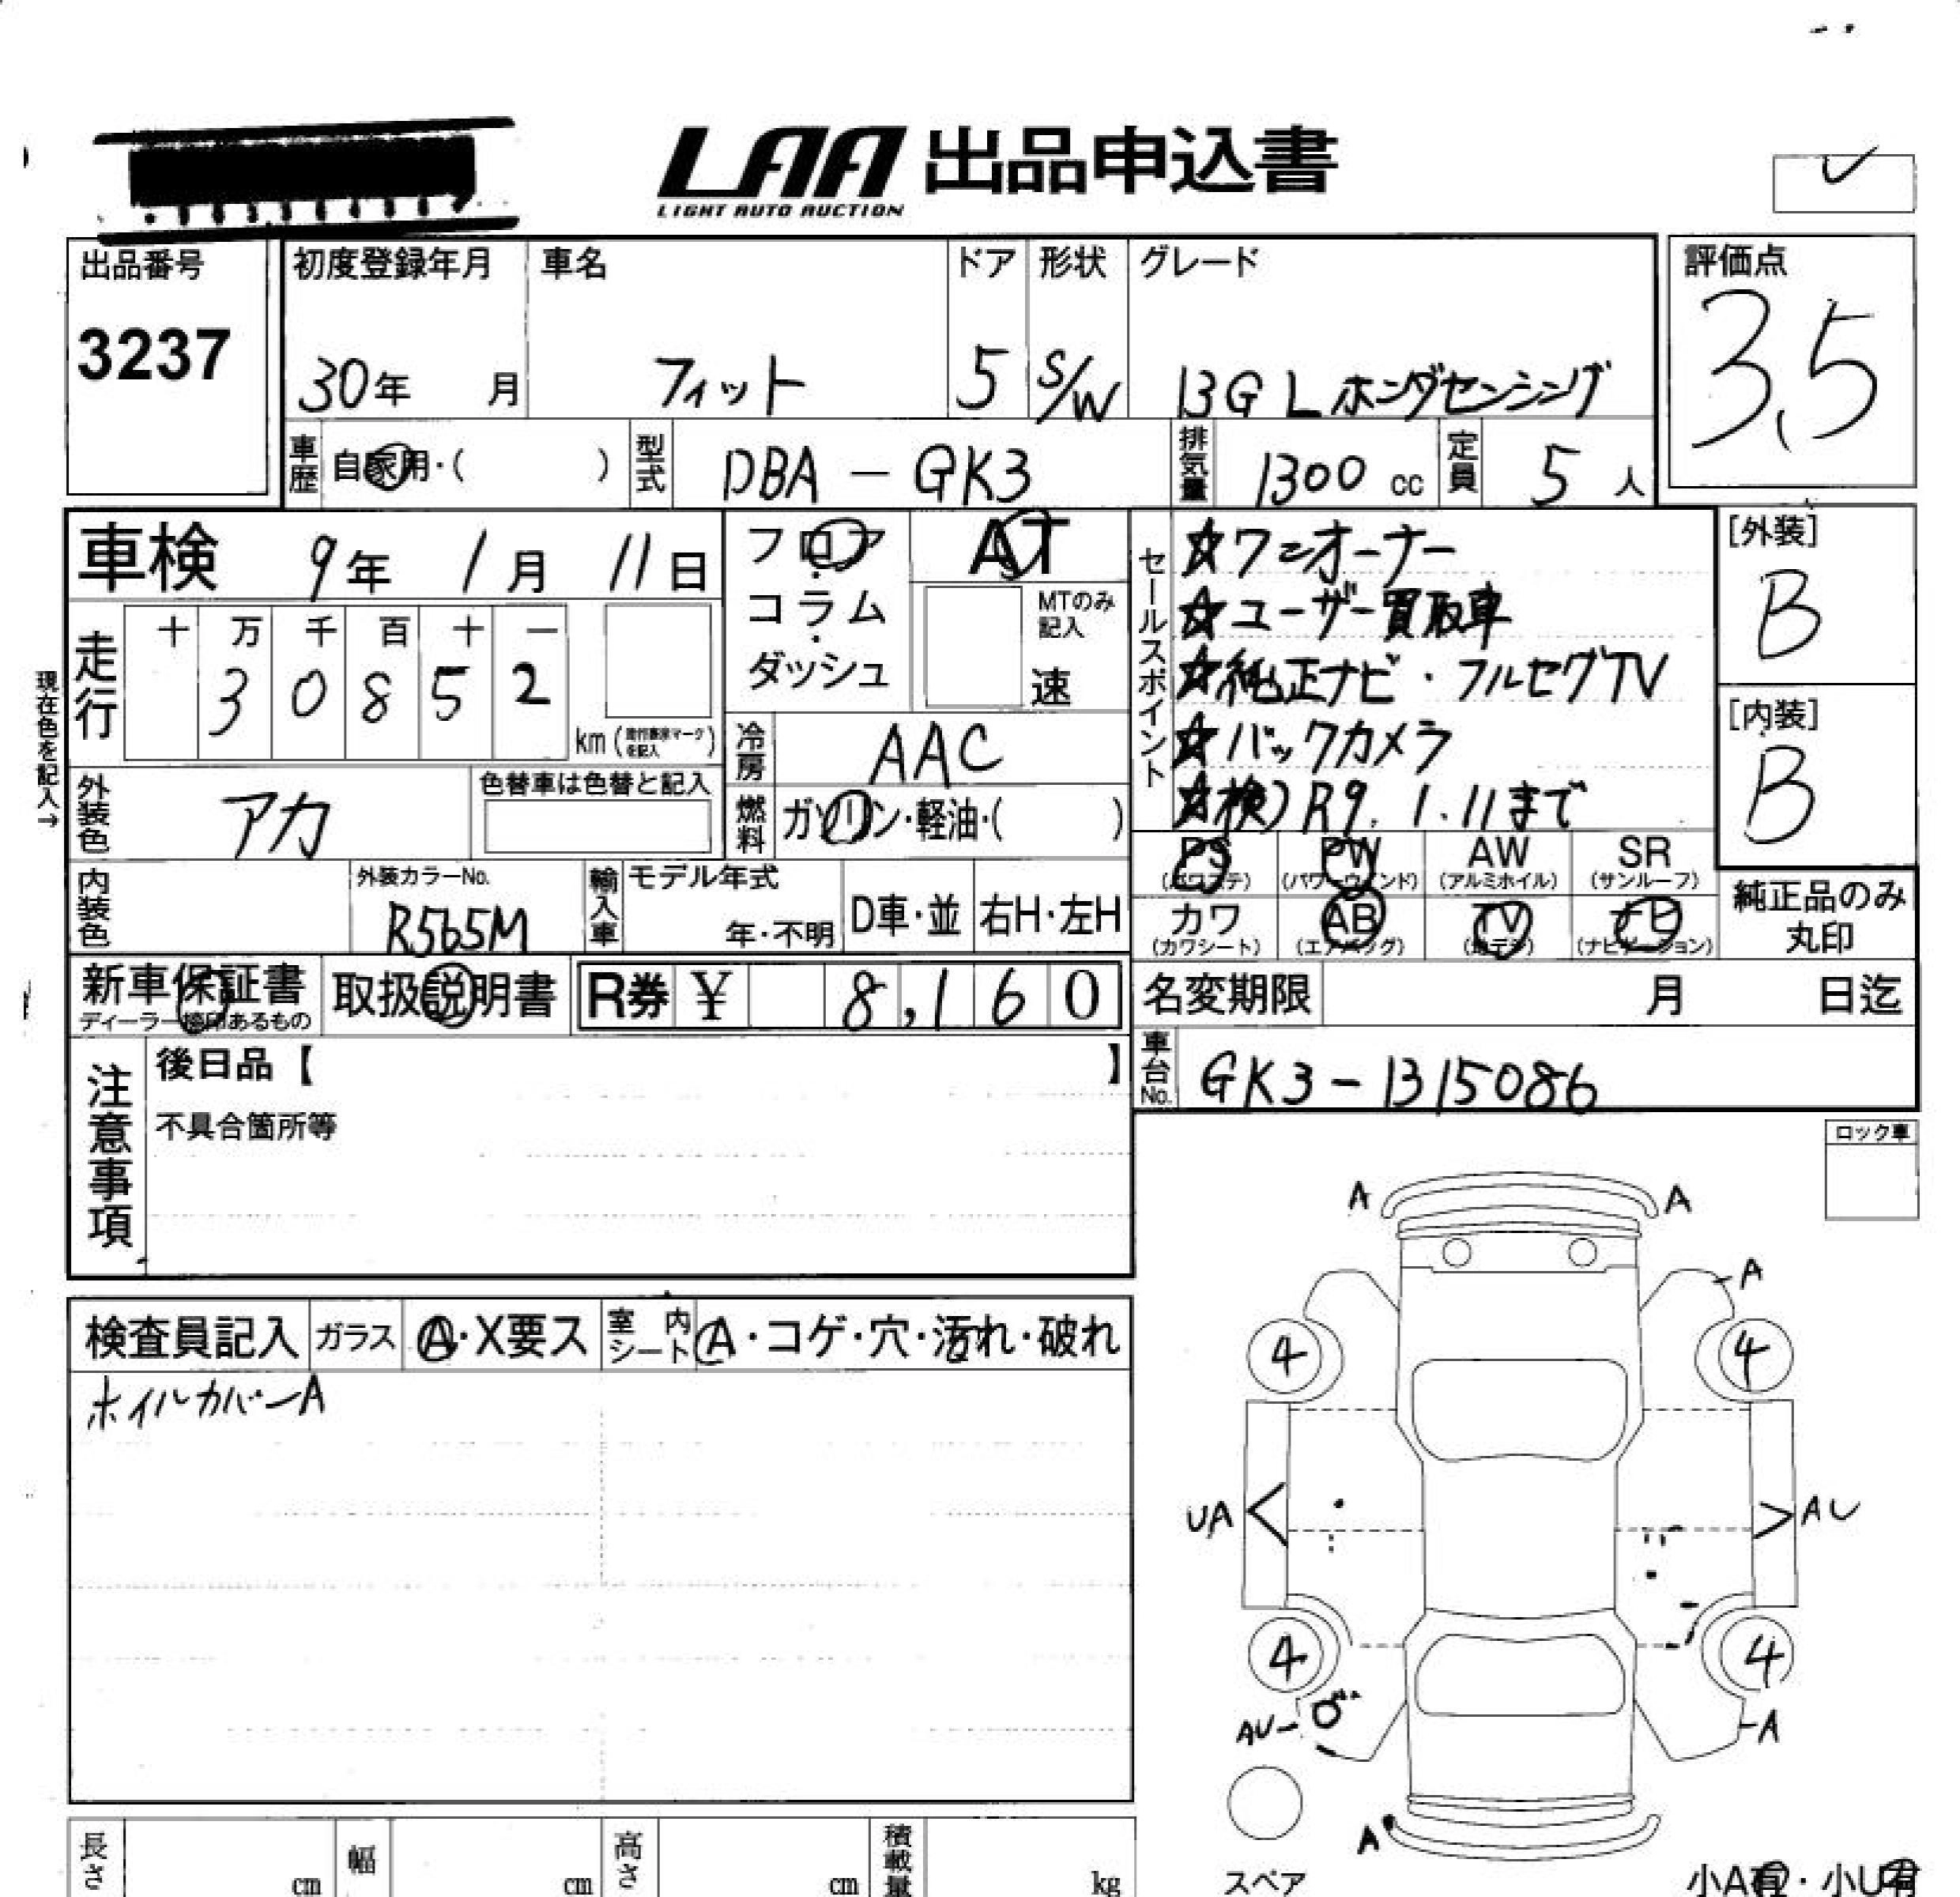 LAA 出品申込書
LIGHT AUTO AUCTION
出品番号
3237
初度登録年月
30年 月
車名
フィット
ドア
5
形状
S/W
グレード
13G L ホンダセンシング
評価点
3.5
車歴
自家用・( )
型式
DBA-GK3
排気量
1300 cc
定員
5 人
車検 9年 1月 11日
フロア・コラム・ダッシュ
AT
MTのみ記入
速
セールスポイント
☆ワンオーナー
☆ユーザー買取車
☆純正ナビ・フルセグTV
☆バックカメラ
☆検)R9.1.11まで
[外装]
B
[内装]
B
現在色を記入→
走行
十 万 千 百 十 一
3 0 8 5 2
km
冷房
AAC
外装色
アカ
色替車は色替と記入
燃料
ガソリン・軽油・( )
PS (パワステ)
PW (パワーウインド)
AW (アルミホイル)
SR (サンルーフ)
カワ (カワシート)
AB (エアバッグ)
TV (地デジ)
ナビ (ナビゲーション)
純正品のみ丸印
内装色
外装カラーNo.
R565M
輸入車
モデル年式
年・不明
D車・並
右H・左H
新車保証書
ディーラー捺印あるもの
取扱説明書
R券 ¥ 8,160
名変期限 月 日迄
車台No.
GK3-1315086
注意事項
後日品【 】
不具合箇所等
ロック車
検査員記入
ガラス
A・X要ス
室内シート
A・コゲ・穴・汚れ・破れ
ホイルカバーA
A A
A
4 4
UA AU
4 4
AU
A
A
スペア
小A有・小U有
長さ cm
幅 cm
高さ cm
積載量 kg